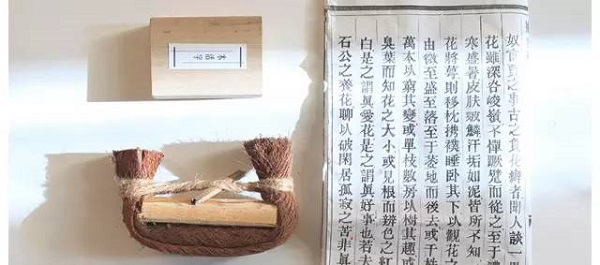 木活字
奴宦賈之事古之負花癖者聞人談一
花雖深谷峻嶺不憚蹶躄而從之至于
寒盛暑皮膚皴鱗汗垢如泥皆所不知
花將萼則移枕攜襆睡卧其下以觀花之
由微至盛至落至于萎地而後去或千株
萬本以窮其變或單枝數房以極其趣
臭葉而知花之大小或見根而辨色之紅
白是之謂眞愛花是之謂眞好事也若夫
石公之養花聊以破閑居孤寂之苦非眞